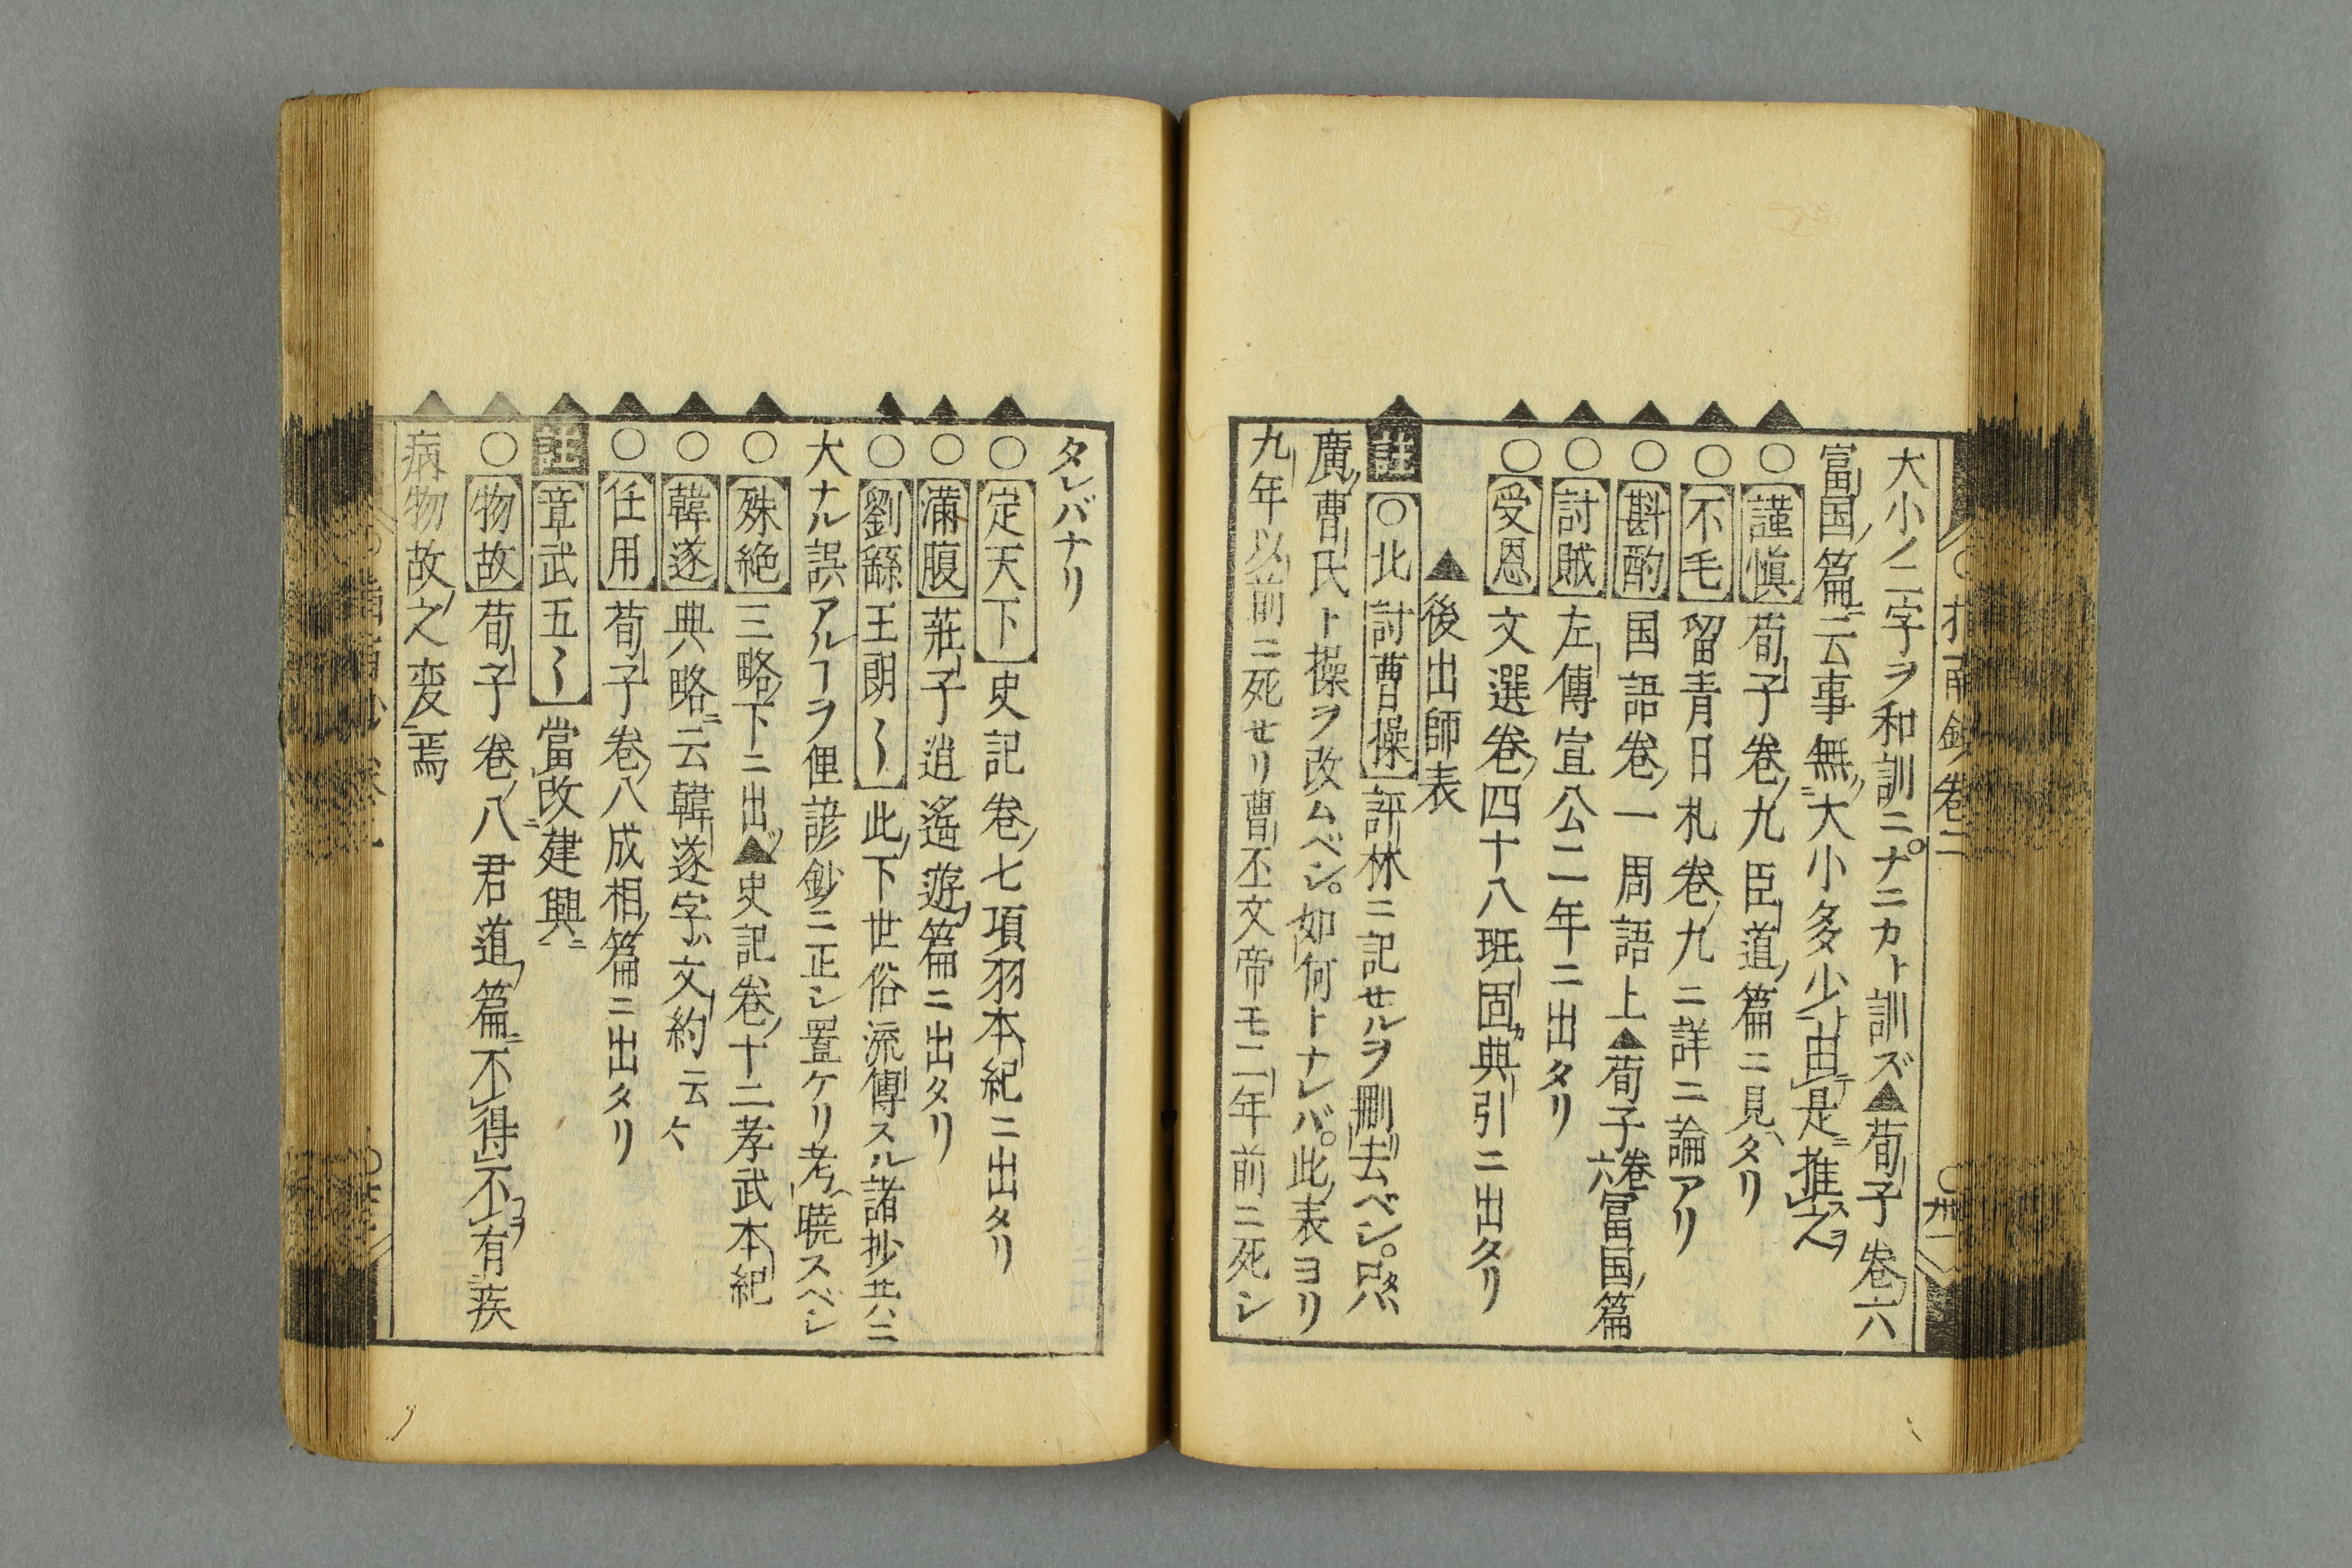 大小ノ二字ヲ和訓ニナニカト訓ズ▲荀子卷六
富国ノ篇ニ云事無大小多少由是推之
○謹愼 荀子卷ノ九臣道ノ篇ニ見ヘタリ
○不毛 留青日札卷ノ九ニ詳ニ論アリ
○斟酌 国語卷ノ一周語上▲荀子卷六富国ノ篇
○討賊 左傳宣公二年ニ出タリ
○受恩 文選卷ノ四十八班固カ典引ニ出タリ
▲後出師表
註○北討曹操 評林ニ記セルヲ刪去ベシ
廣ノ曹氏ト操ヲ改ムベシ。如何トナレバ。此ノ表ヨリ
九年以前ニ死セリ曹丕文帝モ二年前ニ死シ
タレバナリ
○定天下 史記卷ノ七項羽本紀ニ出タリ
○滿腹 莊子逍遙遊ノ篇ニ出タリ
○劉繇王朗〱 此ノ下世俗流傳スル諸抄共ハニ
大ナル誤アルヿヲ俚諺鈔ニ正シ置ケリ考ヘ曉スベシ
○殊絶 三略ノ下ニ出ヅ▲史記卷ノ十二孝武本紀
○韓遂 典略ニ云韓遂字ハ文約云々
○任用 荀子卷ノ八成相ノ篇ニ出タリ
註 章武五〱 當改建興ニ
○物故 荀子卷ノ八君道ノ篇ニ不得不有疾
病物故之変焉